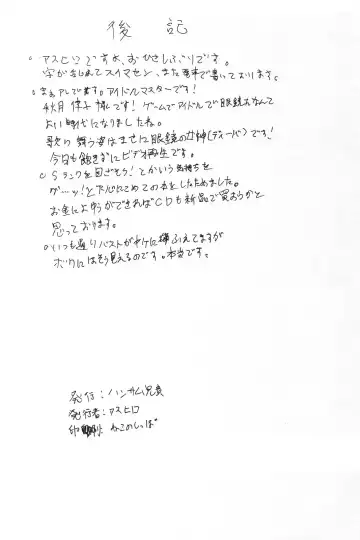 後記
○アスヒロですよ、おひさしぶりです。
字がきたなくてスイマセン、また電車で書いております。
○まぁアレでます。アイドルマスターです!
秋月律子様です!ゲームでアイドルで眼鏡っ娘なんて
よい時代になりましたね。
歌い舞う姿はまさに眼鏡の女神(ディーバ)です!
今日も飽きずにビデオ再生です。
○Sランクを目ざそう!とかいう気持ちを
グーッ!と下心にこめこの本をしたためました。
お金によゆうができればCDも新品で買おうかと
思っております。
○いつも通りバストがヤケに増ふえてますが
ボクにはそう見えるのです。本当です。
発行:ハンサム兄貴
発行者:アスヒロ
印刷 ねこのしっぽ